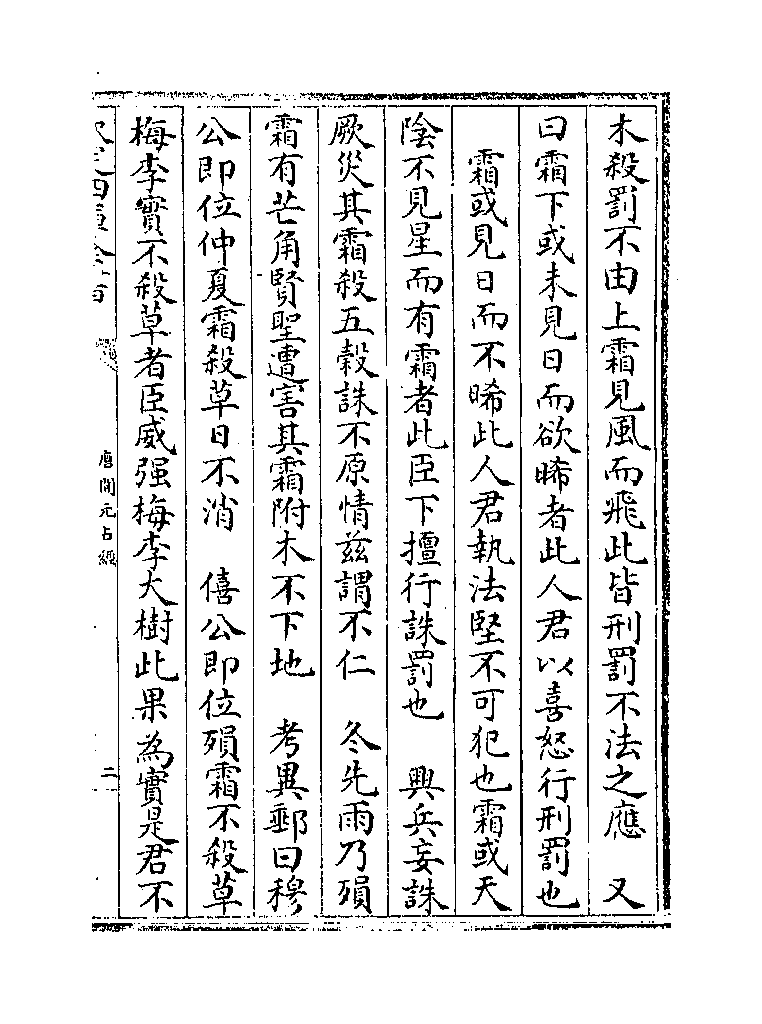 木殺罰不由上霜見風而飛此皆刑罰不法之應　又
曰霜下或未見日而欲晞者此人君以喜怒行刑罰也
霜或見日而不晞此人君執法堅不可犯也霜或天
陰不見星而有霜者此臣下擅行誅罰也　興兵妄誅
厥災其霜殺五穀誅不原情兹謂不仁　冬先雨乃殞
霜有芒角賢聖遭害其霜附木不下地　考異郵曰穆
公即位仲夏霜殺草日不消　僖公即位殞霜不殺草
梅李實不殺草者臣威强梅李大樹此果為實是君不
唐開元占經
二